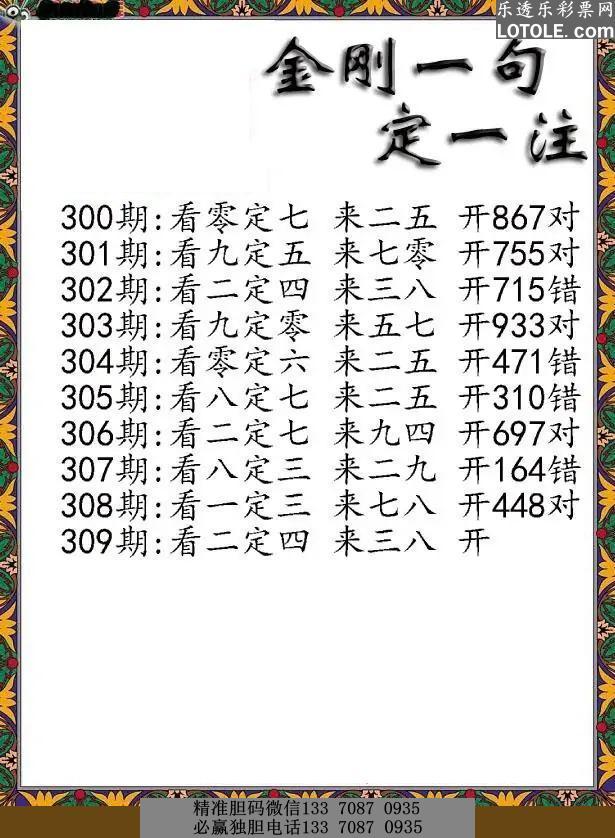 乐透乐彩票网
LOTOLE.com
金刚一句
定一注
300期:看零定七 来二五 开867对
301期:看九定五 来七零 开755对
302期:看二定四 来三八 开715错
303期:看九定零 来五七 开933对
304期:看零定六 来二五 开471错
305期:看八定七 来二五 开310错
306期:看二定七 来九四 开697对
307期:看八定三 来二九 开164错
308期:看一定三 来七八 开448对
309期:看二定四 来三八 开
精准胆码微信133 7087 0935
必赢独胆电话133 7087 0935